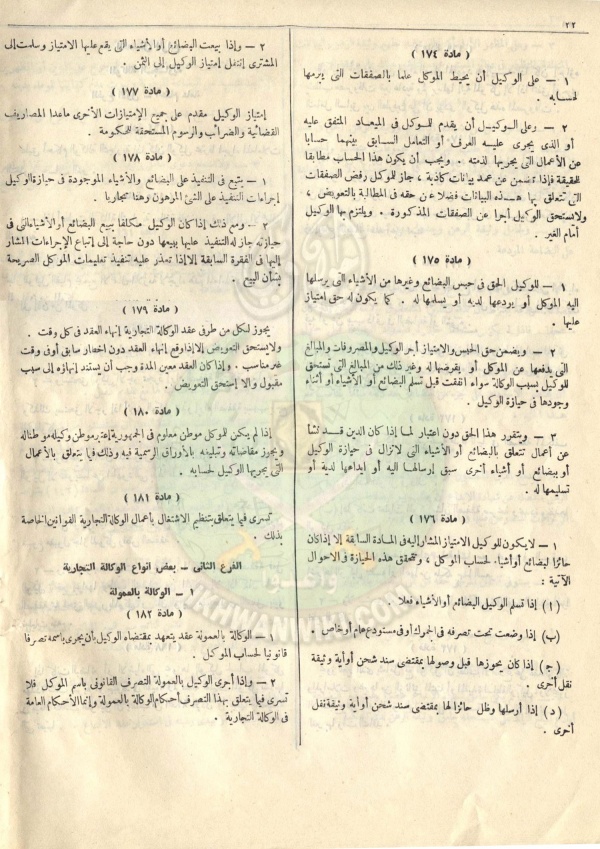 ٢٢
( مادة ١٧٤ )
١ – على الوكيل أن يحيط الموكل علما بالصفقات التى يبرمها
لحسابه .
٢ – وعلى الوكيل أن يقدم للموكل فى الميعاد المتفق عليه
أو الذى يجرى عليه العرف أو التعامل السابق بينهما حسابا
عن الأعمال التى يجريها لذمته . ويجب أن يكون هذا الحساب مطابقا
للحقيقة فإذا تضمن عن عمد بيانات كاذبة ، جاز للموكل رفض الصفقات
التى تتعلق بها هذه البيانات فضلا عن حقه فى المطالبة بالتعويض ،
ولا يستحق الوكيل أجرا عن الصفقات المذكورة . ويلتزم بها الوكيل
أمام الغير .
( مادة ١٧٥ )
١ – للوكيل الحق فى حبس البضائع وغيرها من الأشياء التى يرسلها
اليه الموكل أو يودعها لديه أو يسلمها له . كما يكون له حق امتياز
عليها .
٢ – ويضمن حق الحبس والامتياز أجر الوكيل والمصروفات والمبالغ
التى يدفعها عن الموكل أو يقرضها له وغير ذلك من المبالغ التى تستحق
للوكيل بسبب الوكالة سواء انفقت قبل تسلم البضائع أو الأشياء أو أثناء
وجودها فى حيازة الوكيل .
٣ – ويتقرر هذا الحق دون اعتبار لما إذا كان الدين قد نشأ
عن أعمال تتعلق بالبضائع أو الأشياء التى لا تزال فى حيازة الوكيل
أو ببضائع أو أشياء أخرى سبق إرسالها اليه أو إيداعها لدية أو
تسليمها له .
( مادة ١٧٦ )
١ – لا يكون للوكيل الامتياز المشار إليه فى المادة السابقة إلا إذا كان
حائزا لبضائع أو أشياء لحساب الموكل ، وتتحقق هذه الحيازة فى الاحوال
الآتية :
( ١ ) إذا تسلم الوكيل البضائع أو الأشياء فعلا .
(ب) إذا وضعت تحت تصرفه فى الجمرك أو فى مستودع عام أو خاص .
( ج ) إذا كان يحوزها قبل وصولها بمقتضى سند شحن أو أية وثيقة
نقل أخرى .
( د ) إذا أرسلها وظل حائزا لها بمقتضى سند شحن أو اية وثيقة نقل
أخرى .
٢ – وإذا بيعت البضائع أو الأشياء التى يقع عليها الامتياز وسلمت إلى
المشترى إنتقل امتياز الوكيل إلى الثمن .
( مادة ١٧٧ )
امتياز الوكيل مقدم على جميع الإمتيازات الأخرى ماعدا المصاريف
القضائية والضرائب والرسوم المستحقة للحكومة .
( مادة ١٧٨ )
١ – يتبع فى التنفيذ على البضائع والأشياء الموجودة فى حيازة الوكيل
إجراءات التنفيذ على الشئ المرهون رهنا تجاريا .
٢ – ومع ذلك إذا كان الوكيل مكلفا ببيع البضائع أو الأشياء التى فى
حيازته جاز له التنفيذ عليها ببيعها دون حاجة إلى إتباع الإجراءات المشار
إليها فى الفقرة السابقة إلا إذا تعذر عليه تنفيذ تعليمات الموكل الصريحة
بشأن البيع .
( مادة ١٧٩ )
يجوز لكل من طرفى عقد الوكالة التجارية إنهاء العقد فى كل وقت .
ولا يستحق التعويض إلا إذا وقع إنهاء العقد دون اخطار سابق أو فى وقت
غير مناسب . وإذا كان العقد معين المدة وجب أن يستند إنهاؤه إلى سبب
مقبول والا إستحق التعويض .
( مادة ١٨٠ )
إذا لم يكن للموكل موطن معلوم فى الجمهورية إعتبر موطن وكيله موطنا له
ويجوز مقاضاته وتبليغه بالأوراق الرسمية فيه وذلك فيما يتعلق بالأعمال
التى يجريها الوكيل لحسابه .
( مادة ١٨١ )
تسرى فيما يتعلق بتنظيم الاشتغال بأعمال الوكالة التجارية القوانين الخاصة
بذلك .
الفرع الثانى – بعض انواع الوكالة التجارية
١ – الوكالة بالعمولة
( مادة ١٨٢ )
١ – الوكالة بالعمولة عقد يتعهد بمقتضاه الوكيل بأن يجرى باسمه تصرفا
قانونيا لحساب الموكل .
٢ – وإذا أجرى الوكيل بالعمولة التصرف القانونى باسم الموكل فلا
تسرى فيما يتعلق بهذا التصرف أحكام الوكالة بالعمولة وإنما الأحكام العامة
فى الوكالة التجارية .
وأعدوا
IKHWANWIKI.COM